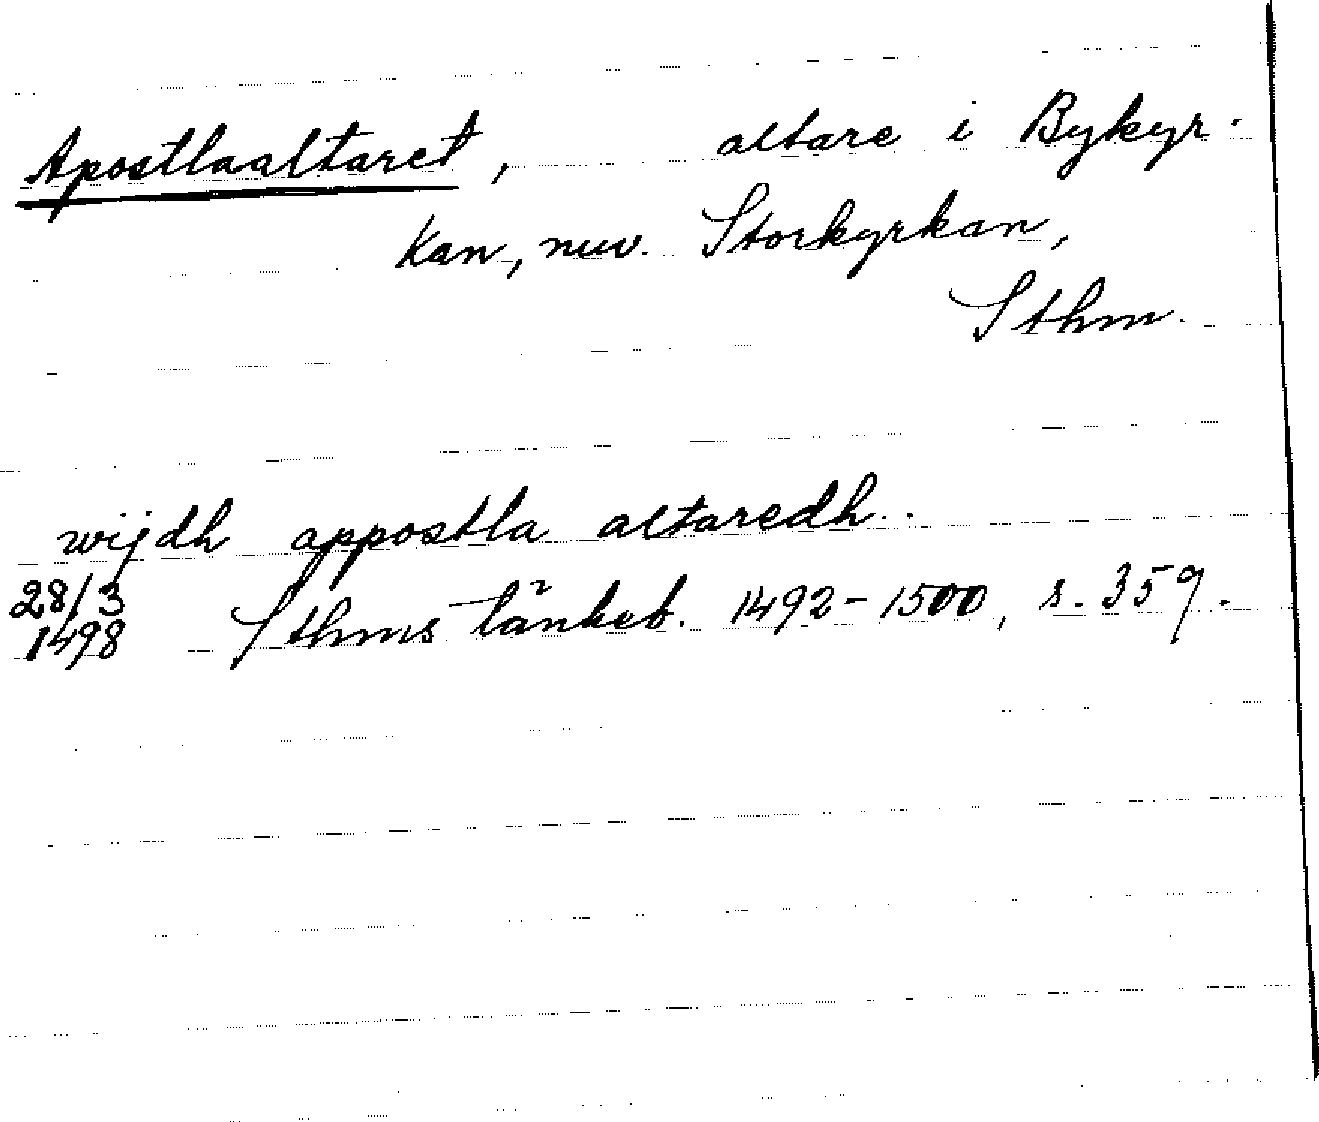 Apostlaaltaret, altare i Bykyr-
kan, nuv. Storkyrkan,
Sthm.
wijdh appostla altaredh..
28/3
1498 Sthms tänkeb. 1492-1500, s. 359.